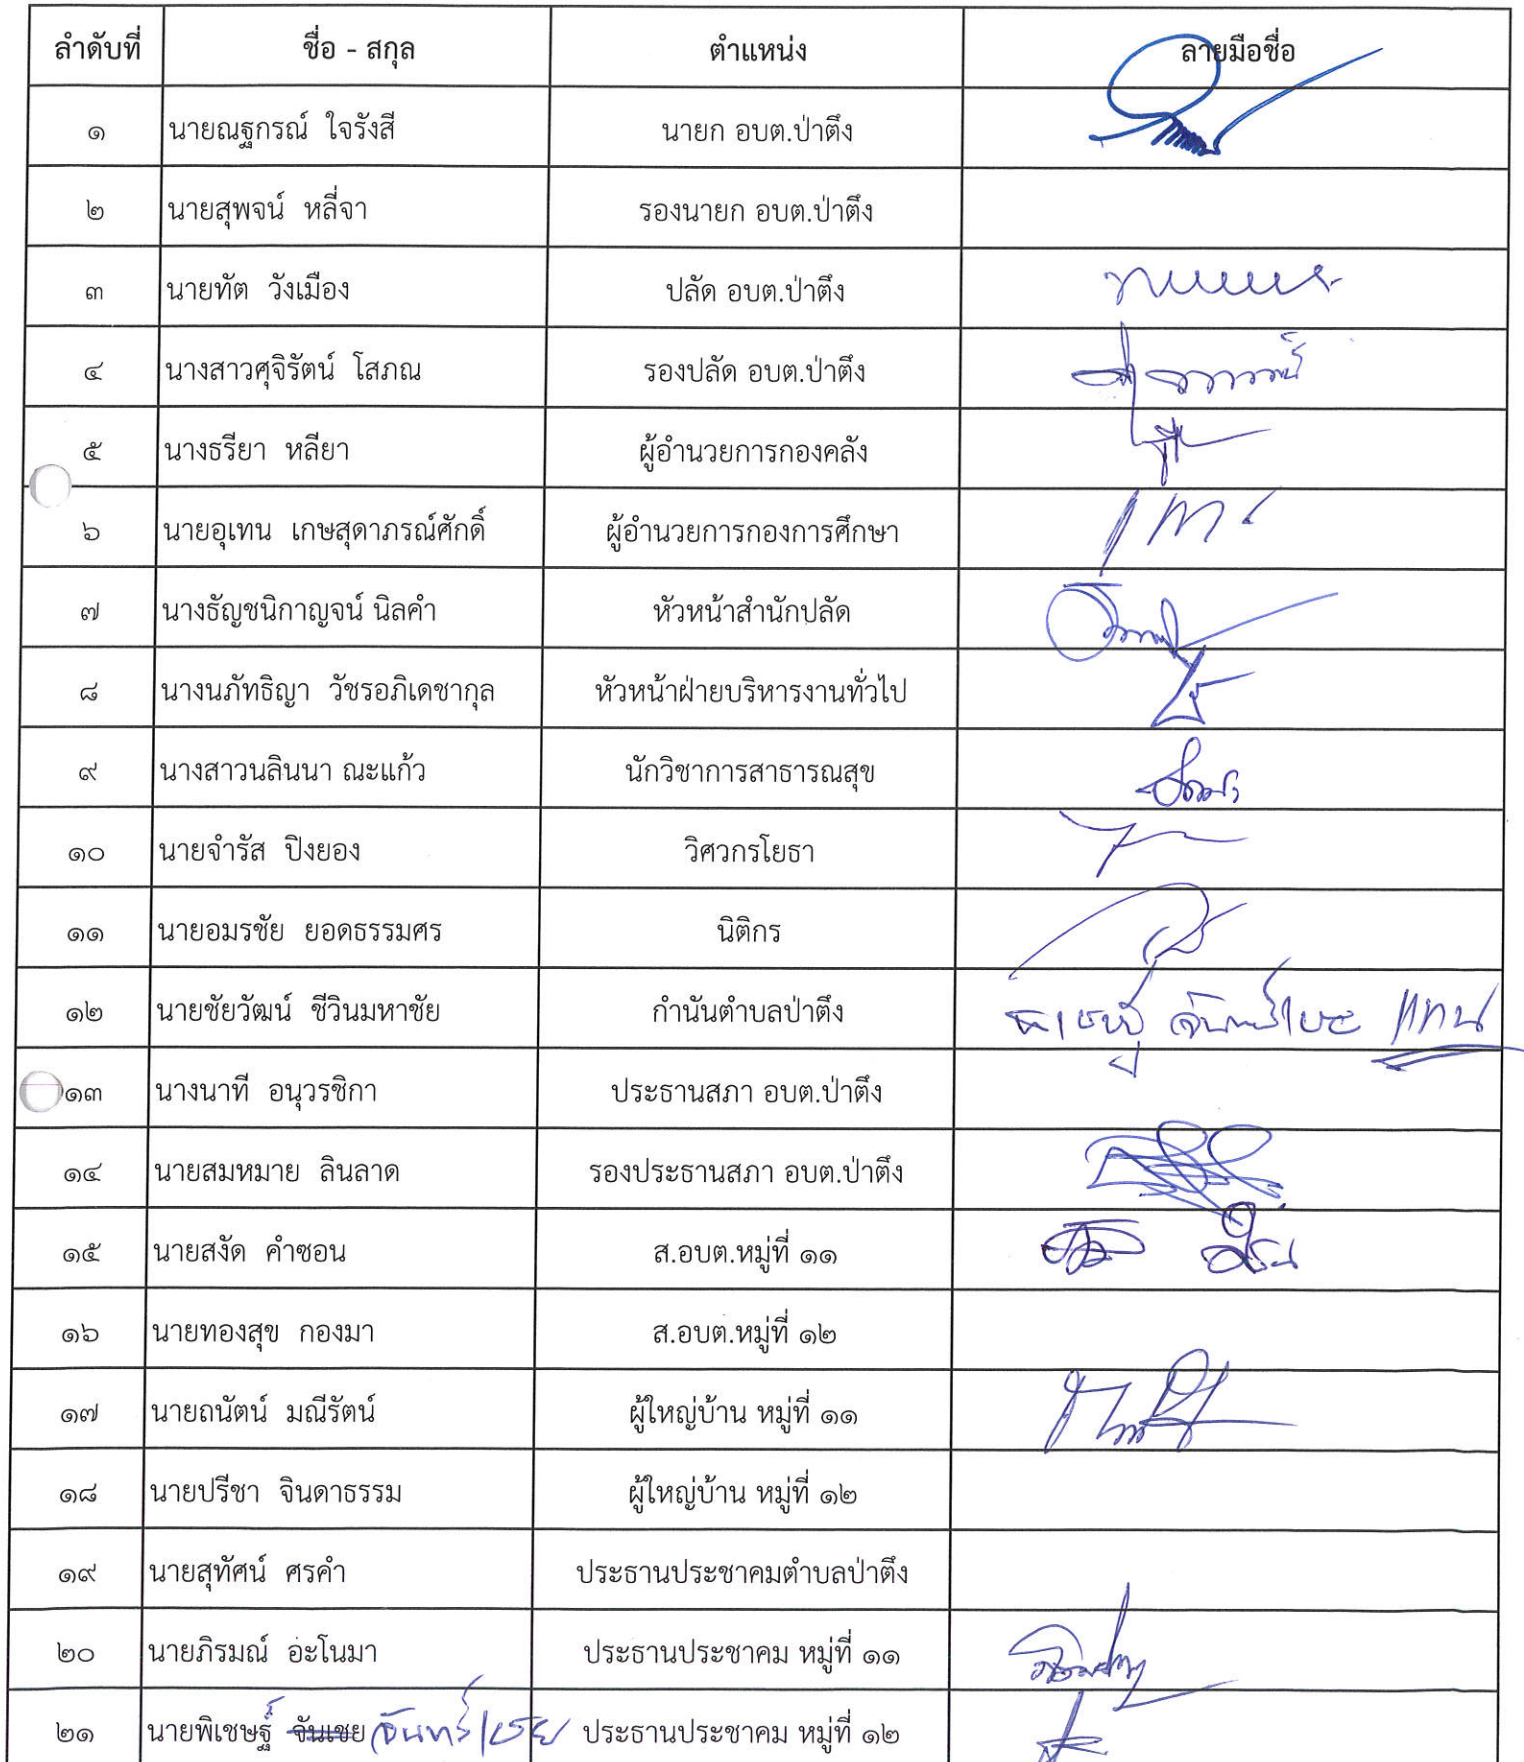 ลำดับที่ ชื่อ - สกุล ตำแหน่ง ลายมือชื่อ
๑ นายณฐกรณ์ ใจรังสี นายก อบต.ป่าตึง
๒ นายสุพจน์ หลี่จา รองนายก อบต.ป่าตึง
๓ นายทัต วังเมือง ปลัด อบต.ป่าตึง
๔ นางสาวศุจิรัตน์ โสภณ รองปลัด อบต.ป่าตึง
๕ นางธรียา หลียา ผู้อำนวยการกองคลัง
๖ นายอุเทน เกษสุดาภรณ์ศักดิ์ ผู้อำนวยการกองการศึกษา
๗ นางธัญชนิกาญจน์ นิลคำ หัวหน้าสำนักปลัด
๘ นางนภัทธิญา วัชรอภิเดชากุล หัวหน้าฝ่ายบริหารงานทั่วไป
๙ นางสาวนลินนา ณะแก้ว นักวิชาการสาธารณสุข
๑๐ นายจำรัส ปิงยอง วิศวกรโยธา
๑๑ นายอมรชัย ยอดธรรมศร นิติกร
๑๒ นายชัยวัฒน์ ชีวินมหาชัย กำนันตำบลป่าตึง แทน
๑๓ นางนาที อนุวรชิกา ประธานสภา อบต.ป่าตึง
๑๔ นายสมหมาย ลินลาด รองประธานสภา อบต.ป่าตึง
๑๕ นายสงัด คำซอน ส.อบต.หมู่ที่ ๑๑
๑๖ นายทองสุข กองมา ส.อบต.หมู่ที่ ๑๒
๑๗ นายถนัตน์ มณีรัตน์ ผู้ใหญ่บ้าน หมู่ที่ ๑๑
๑๘ นายปรีชา จินดาธรรม ผู้ใหญ่บ้าน หมู่ที่ ๑๒
๑๙ นายสุทัศน์ ศรคำ ประธานประชาคมตำบลป่าตึง
๒๐ นายภิรมณ์ อะโนมา ประธานประชาคม หมู่ที่ ๑๑
๒๑ นายพิเชษฐ์ จันเชย จันทร์เชย ประธานประชาคม หมู่ที่ ๑๒